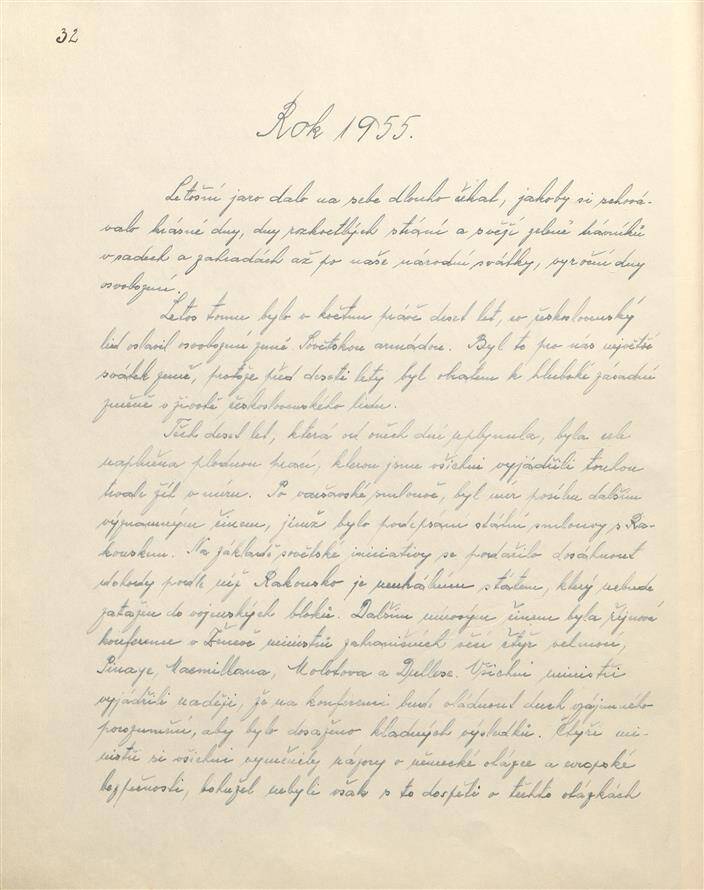 32
Rok 1955.
Letošní jaro dalo na sebe dlouho čekat, jakoby si schová-
valo krásné dny, dny rozkvetlých strání a svěží zeleně trávníků
v sadech a zahradách až po naše národní svátky, výroční dny
osvobození.
Letos tomu bylo v květnu právě deset let, co československý
lid oslavil osvobození země Sovětskou armádou. Byl to pro nás největší
svátek země, protože před deseti lety byl obratem k hluboké zásadní
změně v životě československého lidu.
Těch deset let, která od oněch dní uplynula, byla cele
naplněna plodnou prací, kterou jsme všichni vyjádřili touhou
trvale žít v míru. Po varšavské smlouvě, byl mír posílen dalším
významným činem, jímž bylo podepsání státní smlouvy s Ra-
kouskem. Na základě sovětské iniciativy se podařilo dosáhnout
dohody podle níž Rakousko je neutrálním státem, který nebude
zatažen do vojenských bloků. Dalším mírovým činem byla říjnová
konference v Ženevě ministrů zahraničních věcí čtyř velmocí,
Pinaye, Macmillana, Molotova a Dullese. Všichni ministři
vyjádřili naději, že na konferenci bude vládnout duch vzájemného
porozumění, aby bylo dosaženo kladných výsledků. Čtyři mi-
nistři si všichni vyměnili názory o německé otázce a evropské
bezpečnosti, bohužel nebyli však s to dospěti v těchto otázkách